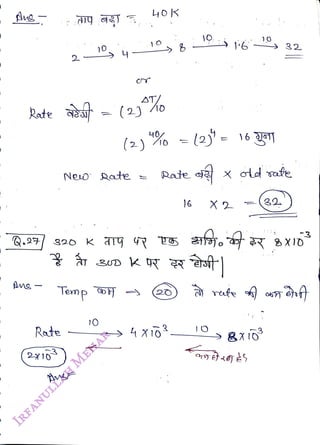 Ans - ताप बढ़ा = 40K
2 —10→ 4 —10→ 8 —10→ 1·6 —10→ 32
or
Rate बढेगी = (2)^ΔT/10
(2)^40/10 = (2)^4 = 16 गुना
New Rate = Rate बढ़ी × old rate
16 × 2 = 32
Q.27] 320 K ताप पर एक अभि० की दर 8×10^-3
है तो 300 K पर दर होगी|
Ans - Temp कम → 20 तो rate भी कम होगी
Rate —10→ 4×10^-3 —10→ 8×10^-3
2×10^-3 कम हो रहा है
Ans
IRFANULLAH MEHAR